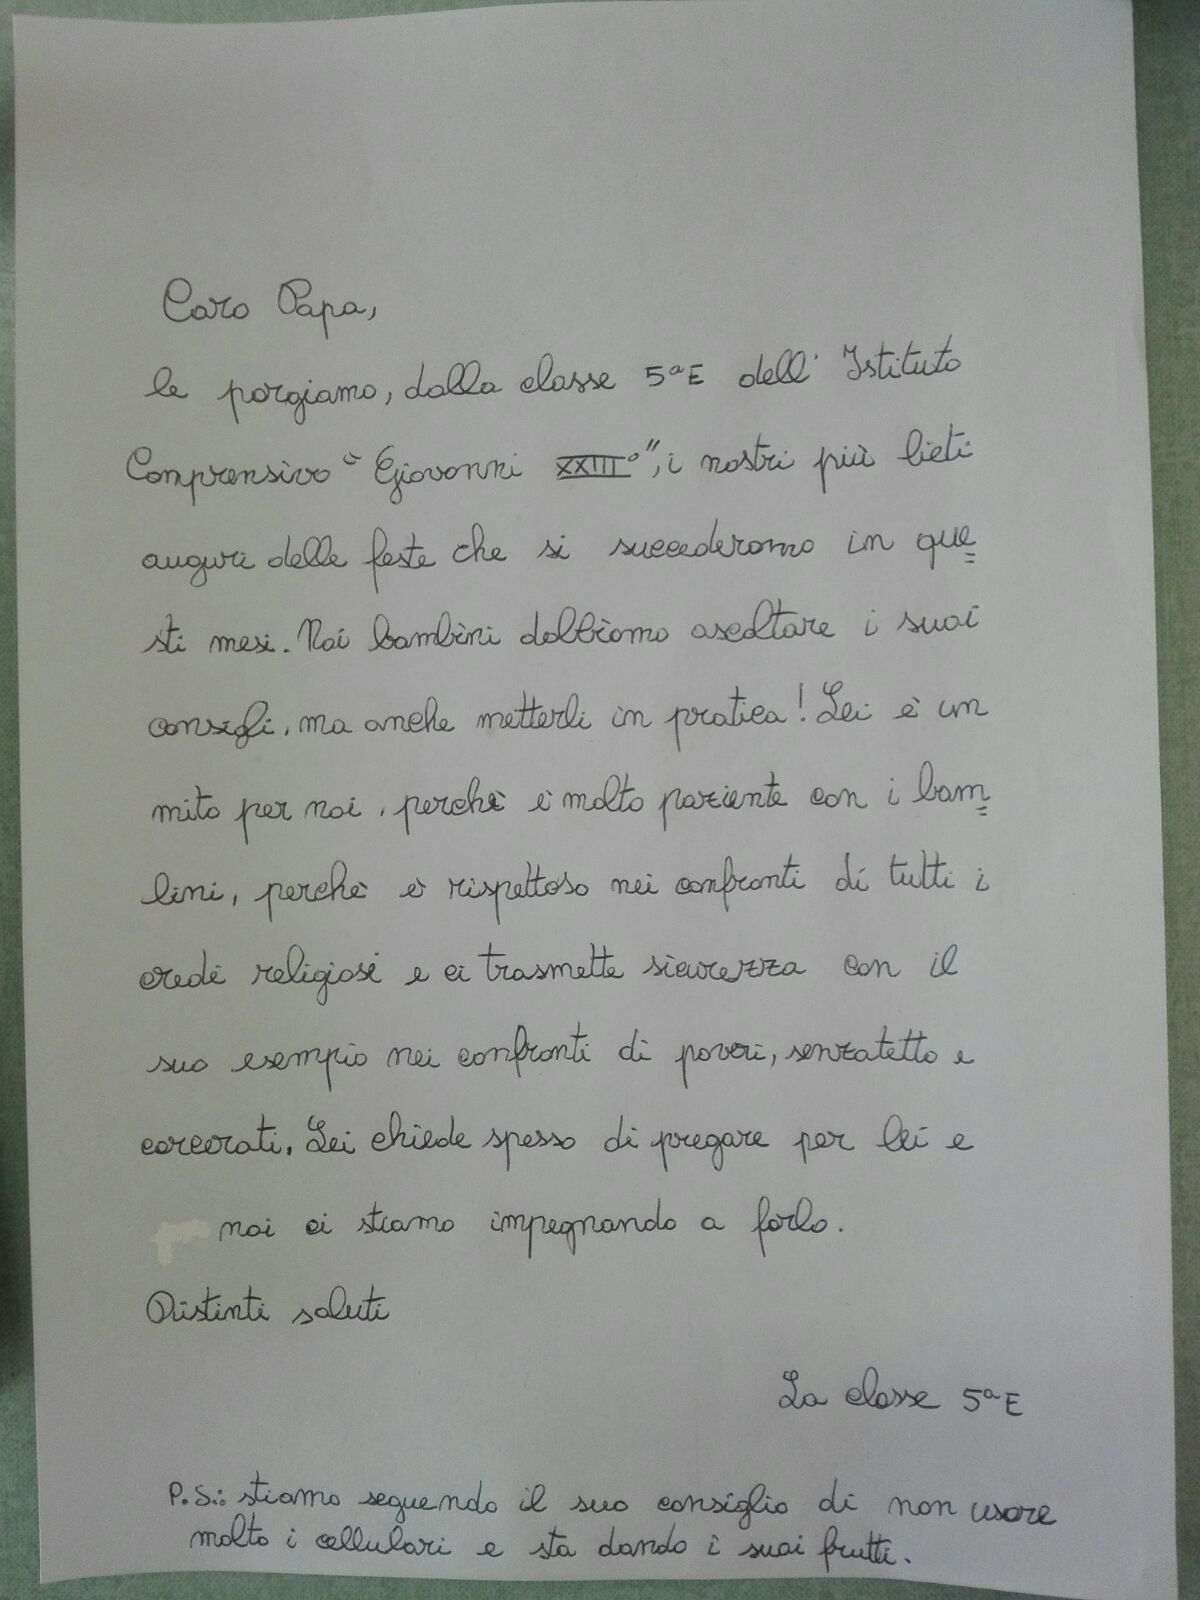 Caro Papa,
le porgiamo, dalla classe 5ªE dell'Istituto
Comprensivo "Giovanni XXIII°", i nostri più lieti
auguri delle feste che si succederanno in que=
sti mesi. Noi bambini dobbiamo ascoltare i suoi
consigli, ma anche metterli in pratica! Lei è un
mito per noi, perché è molto paziente con i bam=
bini, perché è rispettoso nei confronti di tutti i
credi religiosi e ci trasmette sicurezza con il
suo esempio nei confronti di poveri, senzatetto e
carcerati. Lei chiede spesso di pregare per lei e
noi ci stiamo impegnando a farlo.
Distinti saluti
La classe 5ªE
P.S.: stiamo seguendo il suo consiglio di non usare
molto i cellulari e sta dando i suoi frutti.